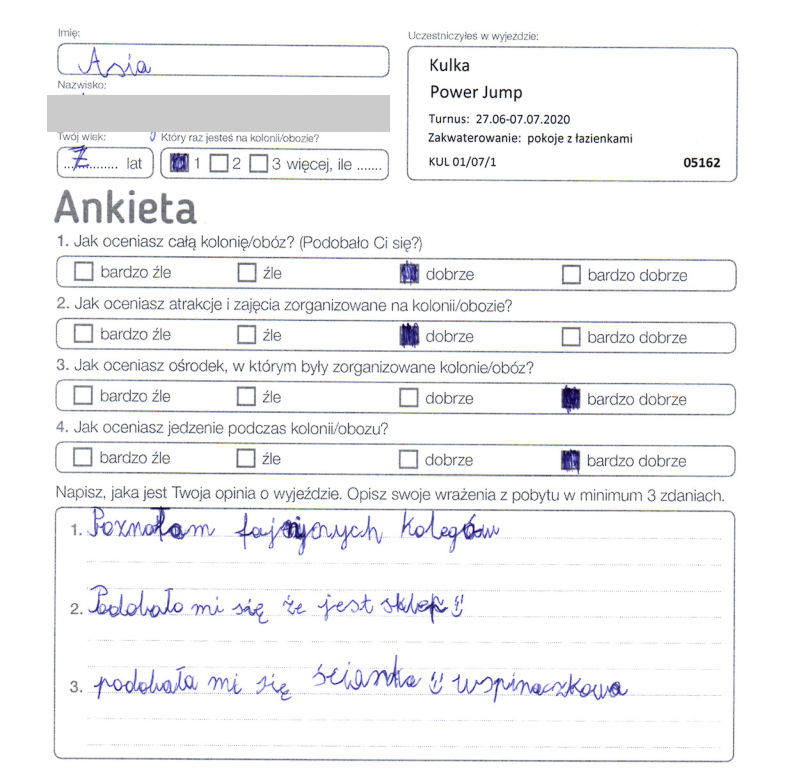 Imię:
Asia
Nazwisko:
Twój wiek:
7 lat
Który raz jesteś na kolonii/obozie?
1 2 3 więcej, ile .......
Uczestniczyłeś w wyjeździe:
Kulka
Power Jump
Turnus: 27.06-07.07.2020
Zakwaterowanie: pokoje z łazienkami
KUL 01/07/1 05162
Ankieta
1. Jak oceniasz całą kolonię/obóz? (Podobało Ci się?)
bardzo źle źle dobrze bardzo dobrze
2. Jak oceniasz atrakcje i zajęcia zorganizowane na kolonii/obozie?
bardzo źle źle dobrze bardzo dobrze
3. Jak oceniasz ośrodek, w którym były zorganizowane kolonie/obóz?
bardzo źle źle dobrze bardzo dobrze
4. Jak oceniasz jedzenie podczas kolonii/obozu?
bardzo źle źle dobrze bardzo dobrze
Napisz, jaka jest Twoja opinia o wyjeździe. Opisz swoje wrażenia z pobytu w minimum 3 zdaniach.
1. Poznałam kolegów
2. Podobało mi się że jest sklep
3. podobała mi się ścianka wspinaczkowa